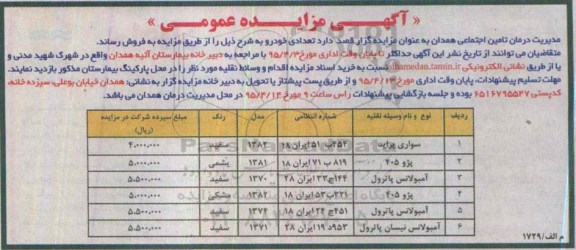 « آگهی مزایده عمومی »
مدیریت درمان تامین اجتماعی همدان به عنوان مزایده گزار قصد دارد تعدادی خودرو به شرح ذیل را از طریق مزایده به فروش رساند.
متقاضیان می توانند از تاریخ نشر این آگهی حداکثر تا پایان وقت اداری مورخ ۹۵/۳/۳ با مراجعه به دبیرخانه بیمارستان آتیه همدان واقع در شهرک شهید مدنی و
یا از طریق نشانی الکترونیکی hamedan.tamin.ir نسبت به خرید اسناد مزایده اقدام و وسایل نقلیه مورد نظر را در محل پارکینگ بیمارستان مذکور بازدید نمایند.
مهلت تسلیم پیشنهادات، پایان وقت اداری مورخ ۹۵/۳/۱۳ و از طریق پست پیشتاز یا تحویل به دبیر خانه مزایده گزار به نشانی: همدان خیابان بوعلی، سیزده خانه،
کدپستی ۶۵۱۶۷۹۵۵۴۷ بوده و جلسه بازگشایی پیشنهادات راس ساعت ۹ مورخ ۹۵/۳/۱۳ در محل مدیریت درمان همدان می باشد.
ردیف نوع و نام وسیله نقلیه شماره انتظامی مدل رنگ مبلغ سپرده شرکت در مزایده (ریال)
۱ سواری پراید ۲۵۲ب۵۱ ایران ۱۸ ۱۳۸۲ سفید ۴.۰۰۰.۰۰۰
۲ پژو ۴۰۵ ۸۱۹ ب ۷۱ ایران ۱۸ ۱۳۸۱ یشمی ۵.۰۰۰.۰۰۰
۳ آمبولانس پاترول ۱۴۴ج۳۳ ایران ۲۸ ۱۳۷۰ سفید ۵.۵۰۰.۰۰۰
۴ پژو ۴۰۵ ۲۲۱ب۵۳ ایران ۱۸ ۱۳۸۲ مشکی ۵.۰۰۰.۰۰۰
۵ آمبولانس پاترول ۴۵۱ج۲۴ ایران ۱۸ ۱۳۷۲ سفید ۵.۵۰۰.۰۰۰
۶ آمبولانس نیسان پاترول ۹۵۳د۱۹ ایران ۲۸ ۱۳۷۱ سفید ۵.۵۰۰.۰۰۰
م الف/۱۷۲۹